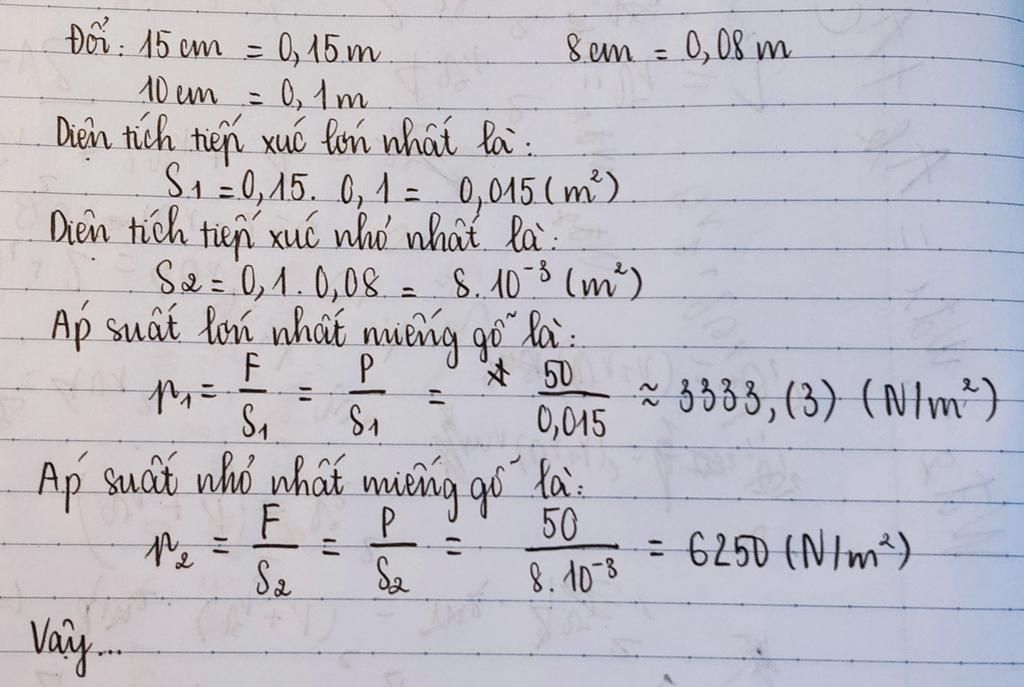 Đổi: 15 cm = 0,15 m 8 cm = 0,08 m
10 cm = 0,1 m
Diện tích tiếp xúc lớn nhất là:
S1 = 0,15. 0,1 = 0,015 (m²)
Diện tích tiếp xúc nhỏ nhất là:
S2 = 0,1. 0,08 = 8.10⁻³ (m²)
Áp suất lớn nhất miếng gỗ là:
p₁ = F/S₁ = P/S₁ = 50/0,015 ≈ 3333,(3) (N/m²)
Áp suất nhỏ nhất miếng gỗ là:
p₂ = F/S₂ = P/S₂ = 50/8.10⁻³ = 6250 (N/m²)
Vậy...